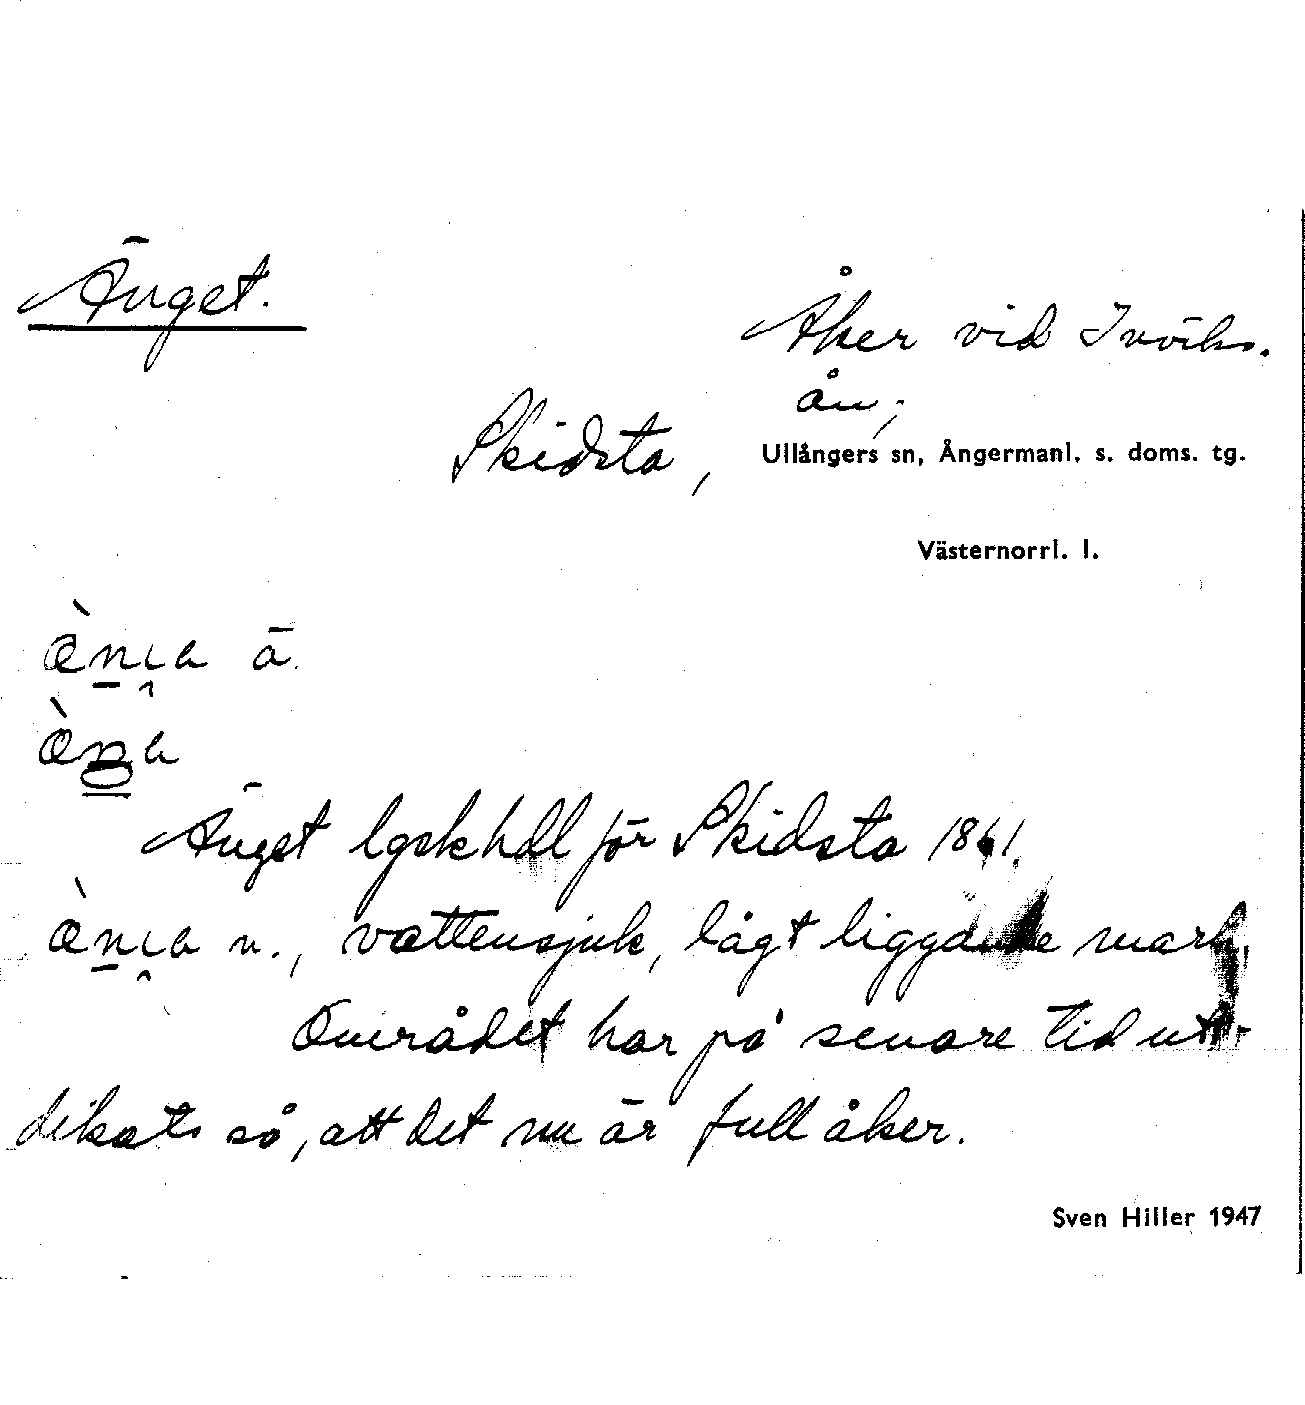 Änget.
Åker vid Inviks-
ån;
Skidsta, Ullångers sn, Ångermanl. s. doms. tg.
Västernorrl. l.
Änget lgskhdl för Skidsta 1861.
n., vattensjuk, lågt liggande mark.
Området har på senare tid ut-
dikats så, att det nu är full åker.
Sven Hiller 1947